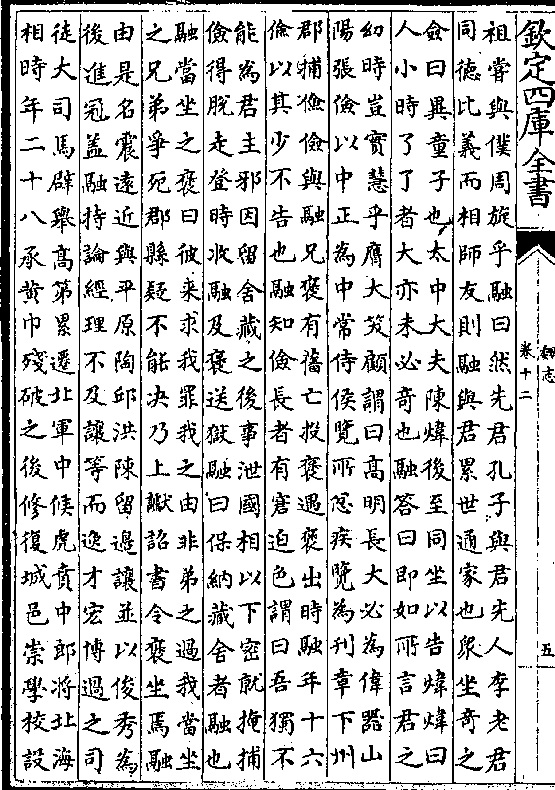 欽定四庫全書
魏志
卷十二
五
祖嘗與僕周旋乎融曰然先君孔子與君先人李老君
同德比義而相師友則融與君累世通家也衆坐奇之
僉曰異童子也太中大夫陳煒後至同坐以告煒煒曰
人小時了了者大亦未必奇也融答曰即如所言君之
幼時豈實慧乎膺大笑顧謂曰高明長大必為偉器山
陽張儉以中正為中常侍侯覽所忿疾覽為刊章下州
郡捕儉儉與融兄褒有舊亡投褒遇褒出時融年十六
儉以其少不告也融知儉長者有窘迫色謂曰吾獨不
能為君主邪因留舍藏之後事泄國相以下密就掩捕
儉得脫走登時收融及褒送獄融曰保納藏舍者融也
融當坐之褒曰彼來求我罪我之由非弟之過我當坐
之兄弟爭死郡縣疑不能決乃上讞詔書令褒坐焉融
由是名震遠近與平原陶邱洪陳留邊讓並以俊秀為
後進冠蓋融持論經理不及讓等而逸才宏博過之司
徒大司馬辟舉高第累遷北軍中候虎賁中郎將北海
相時年二十八承黄巾殘破之後修復城邑崇學校設